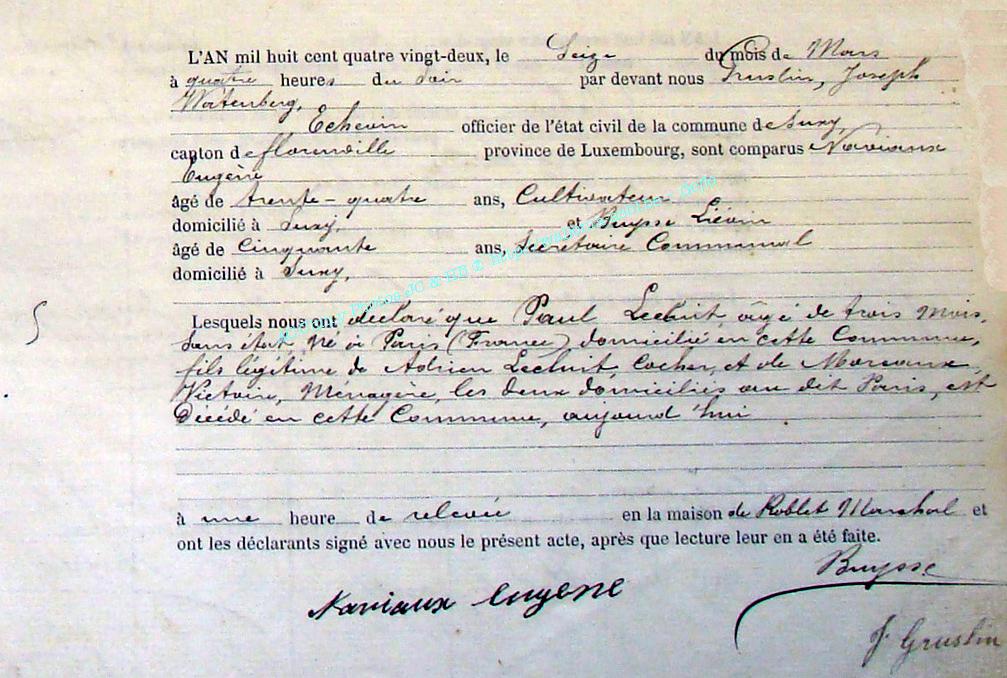 L'AN mil huit cent quatre vingt-deux, le Seize du mois de Mars
à quatre heures du Soir par devant nous Gruslin, Joseph
Watenberg,
Echevin officier de l'état civil de la commune de Suxy,
canton de florenville province de Luxembourg, sont comparus Naviaux
Eugène
âgé de trente-quatre ans, Cultivateur
domicilié à Suxy, et Buysse Liévin
âgé de Cinquante ans, Secrétaire Communal
domicilié à Suxy,
Lesquels nous ont déclaré que Paul Lechuit, âgé de trois mois,
sans état, né à Paris (France) domicilié en cette Commune,
fils légitime de Adrien Lechuit, Cocher, et de Marcaux
Victoire, Ménagère, les deux domiciliés au dit Paris, est
Décédé en cette Commune, aujourd'hui
à une heure de relevée en la maison de Roblet Marchal et
ont les déclarants signé avec nous le présent acte, après que lecture leur en a été faite.
Buysse
Naviaux Eugene
J. Gruslin